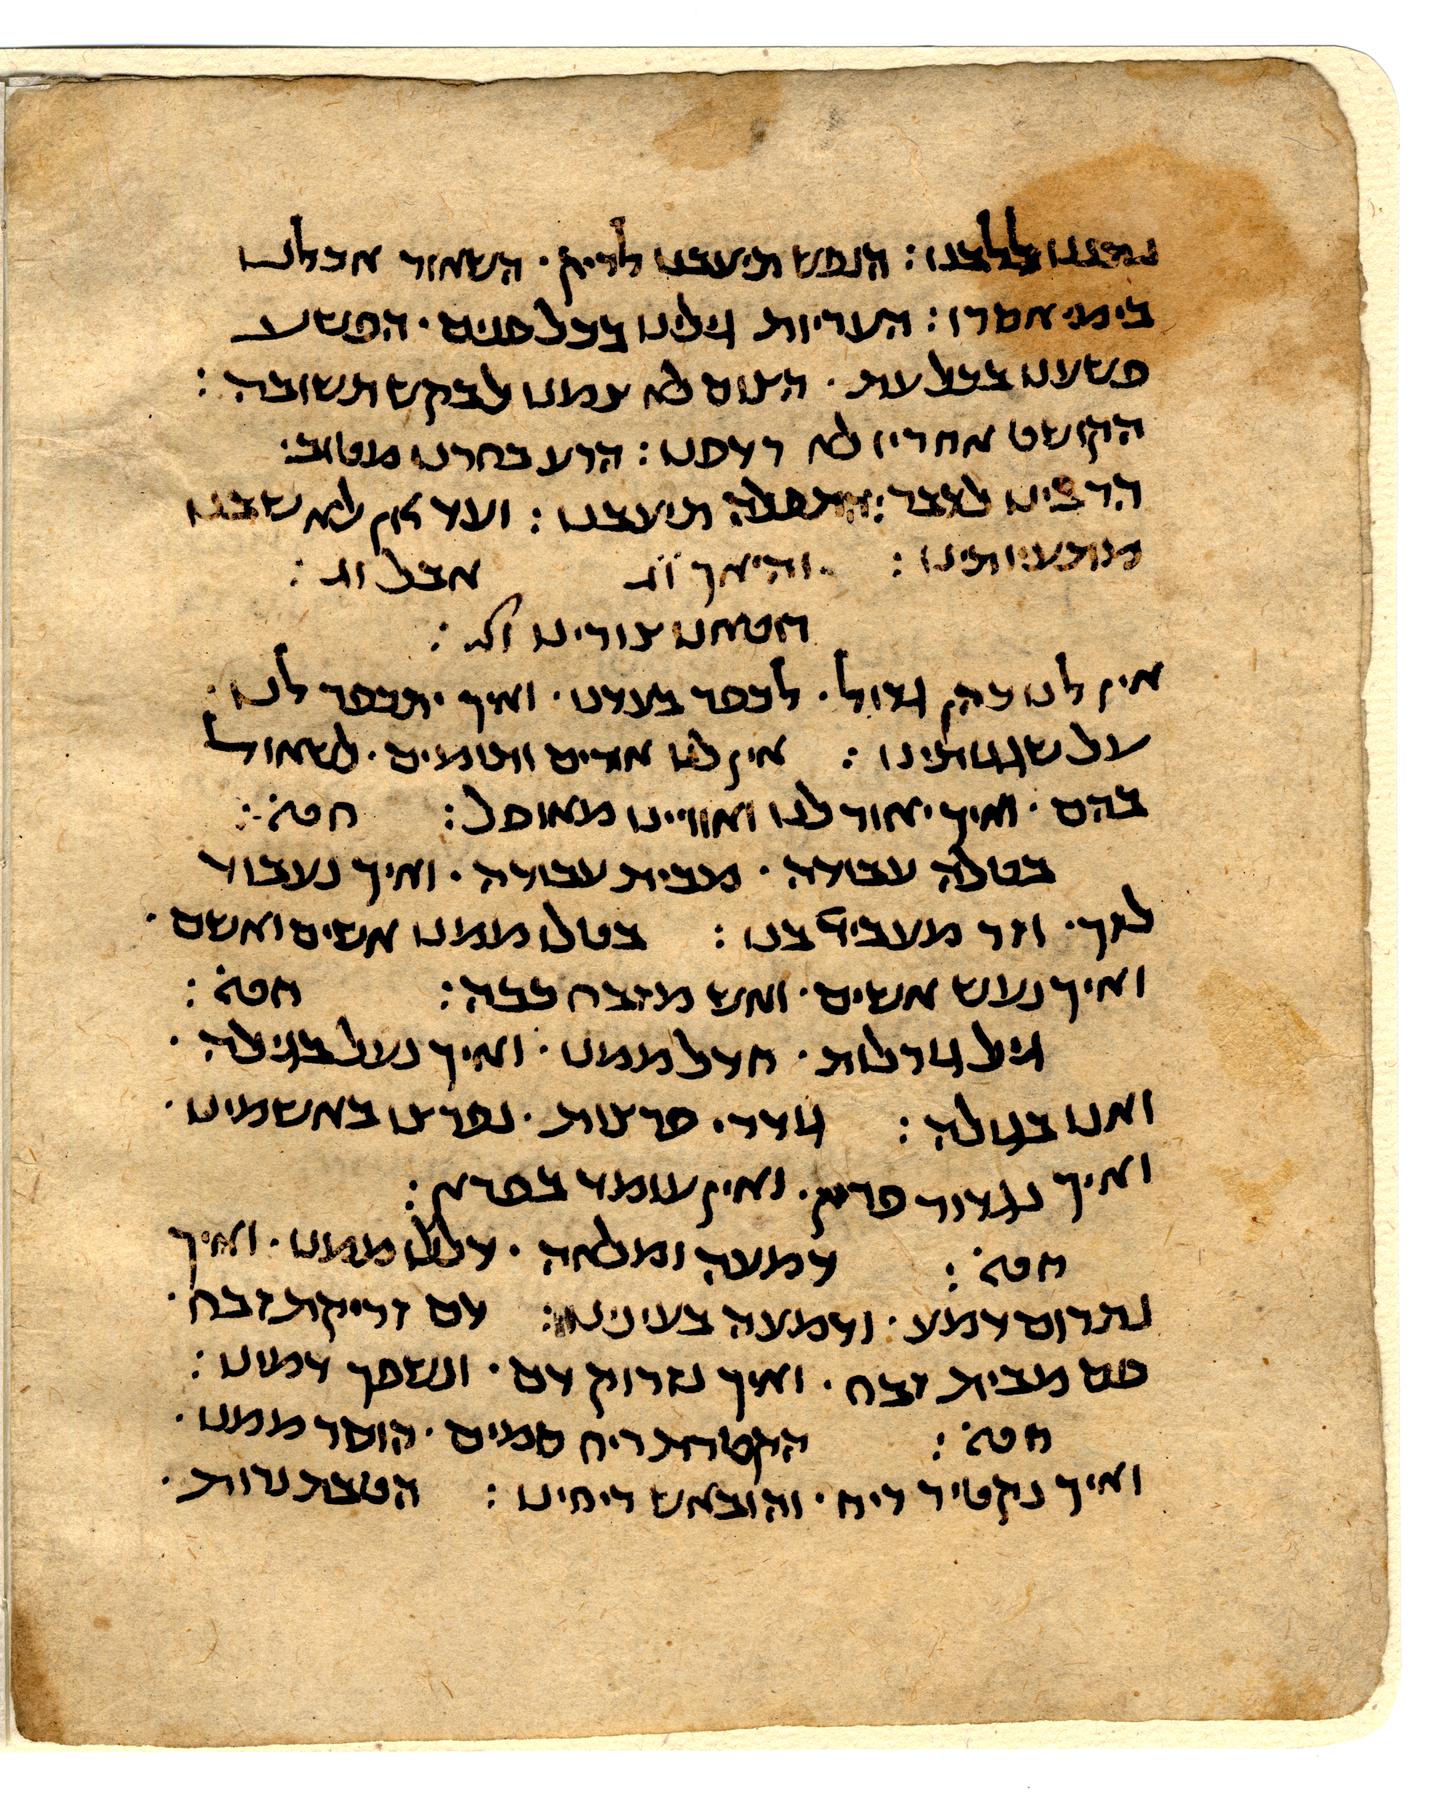 נתננו ללבנו : הנפש תיעבנו לריק · השאור אכלנו
בימי אסרו : העריות גילינו בכל פנים · הפשע
פשענו בכל עת · הצום לא צמנו לבקש תשובה :
הקושט אחריו לא רדפנו : הרע בחרנו מטוב ·
הרבינו לצבר : התפלה תיעבנו : ועד אן לא שבנו
מתעיותינו : והיאך וג אבל וג :
חטאנו צורינו וג :
אין לנו כהן גדול · לכפר בעדנו · ואיך יתכפר לנו ·
על שגגותינו : אין לנו אורים ותומים · לשאול
בהם · ואיך יאור לנו ואוויינו מאופל : חטא :
בטלה עבודה · מבית עבודה · ואיך נעבוד
לזך · וזר מעביד בנו : בטלו ממנו אשים ואשם ·
ואיך נעש אשים · ואש מזבח כבה : חטא :
גיל גורלות · חדל ממנו · ואיך נעל בגילה ·
ואנו בגולה : גודרי פרצות · נפרצו באשמינו ·
ואיך נגדור פרץ · ואין עומד בפרץ :
חטא : דמעה ומלאה · דללו ממנו · ואיך
נתרום דמע · ודמעה בעינינו : דם זריקת זבח ·
תם מבית זבח · ואיך נזרוק דם · ונשפך דמינו :
חטא : הקטרת ריח סמים · הוסר ממנו ·
ואיך נקטיר ריח · והובאש ריחינו : הטבת נרות ·